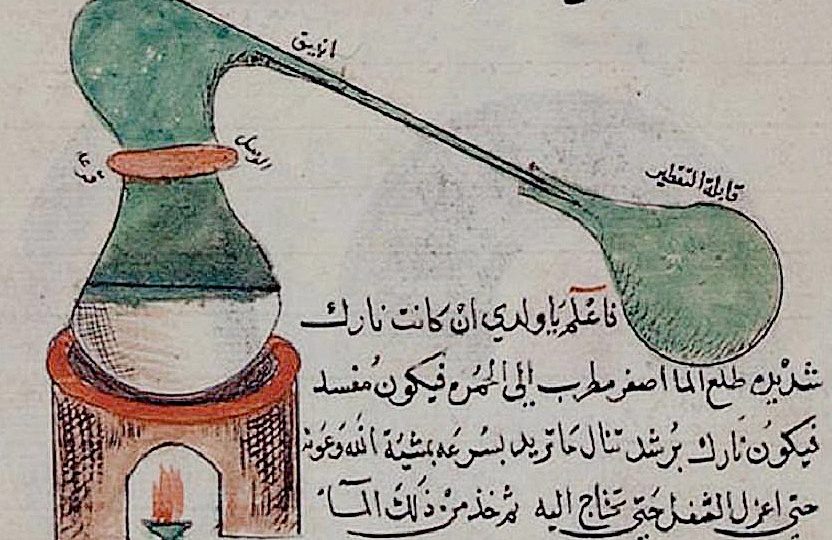 انبيق
الوصل
قرعة
قابلة التقطير
فاعلم يا ولدي ان كانت نارك
شديده طلع الما اصفر مطرب الى الحمره فيكون مفسد
فيكون نارك برشد تنال ما تريد بسرعه بمشيئة الله وعونه
حتى اعزل الثفل حتى تحتاج اليه ثم خذ من ذلك المآء